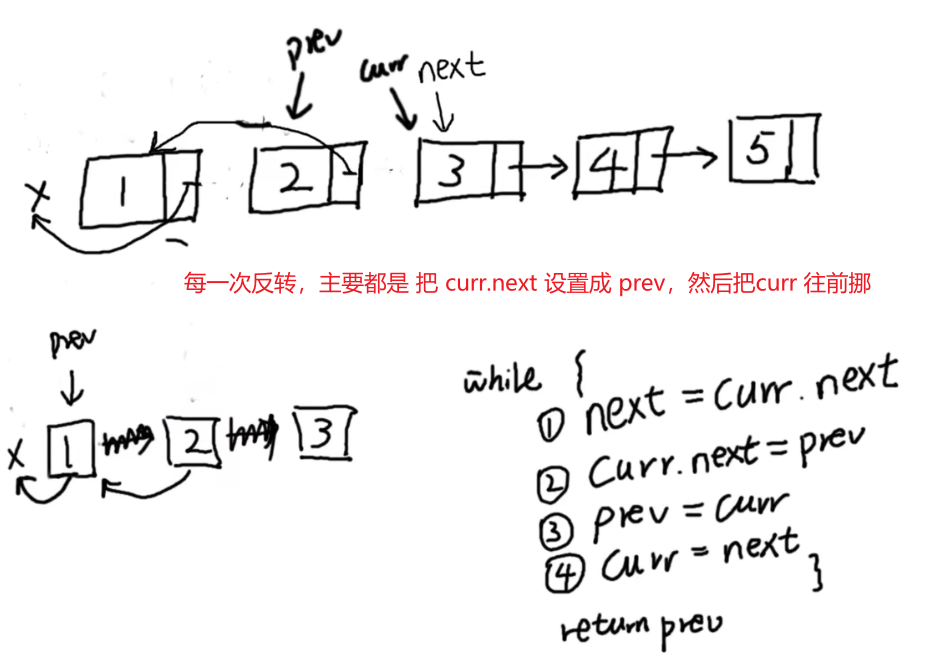 prev
curr next
X 1 2 3 4 5
每一次反转，主要都是 把 curr.next 设置成 prev，然后把curr 往前挪
prev
X 1 2 3
while {
① next = curr.next
② Curr.next = prev
③ prev = curr
④ Curr = next
}
return prev